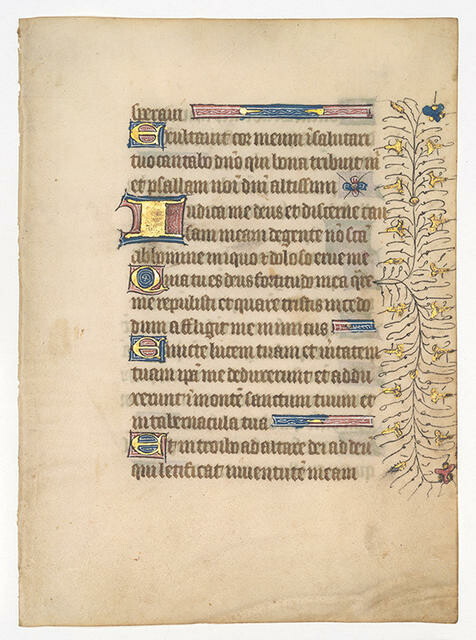 speraui
Exultauit cor meum ī salutari
tuo cantabo dño qui bona tribuit m̄
et psallam noī dñi altissimi
Iudica me deus et discerne cau
sam meam de gente nō sc̄a
ab homine iniquo ⁊ doloso erue me
Quia tu es deus fortitudo mea qre
me repulisti et quare tristis incedo
dum affligit me inimicus
Emitte lucem tuam et ūitatem
tuam ip̄a me deduxerunt et addu
xerunt ī montē sanctum tuum et
in tabernacula tua
Et introibo ad altare dei ad deū
qui letificat iuuentutē meam